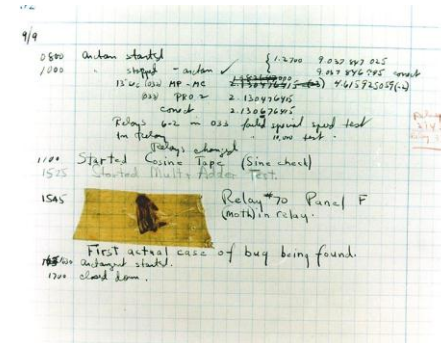 9/9
0800 antan started { 1.2700 9.037 847 025
1000 " stopped - antan ✓ 9.037 846 995 correct
13"uc (032) MP-MC 2.130476415 (-3) 4.615925059(-2)
033 PRO 2 2.130476415
correct 2.130676415
Relays 6-2 in 033 failed special speed test
in relay " 10.00 test.
Relays changed
1100 Started Cosine Tape (Sine check)
1525 Started Mult+Adder Test.
1545 Relay #70 Panel F
(moth) in relay.
First actual case of bug being found.
antangent started.
1700 closed down.